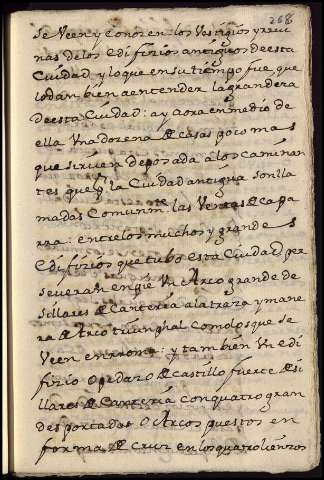 268
se veen y conoçen los vestigios y rrui
nas de los edifizios antiguos de esta
Ciudad y lo que en su tiempo fue que
lo dan bien a entender la grandeza
de esta Ciudad: ay aora en medio de
ella Una dozena de casas poco mas
que sirven de posada a los caminan
tes que la Ciudad antigua son lla
madas Comunmte las Ventas de capa
rra: entre los muchos y grandes
edifizios que tubo esta Ciudad per
severa en pie Un Arco grande de
sillares de Canteria a la traza y mane
ra de Arco triumphal como los que se
Veen en rroma: y tambien Un edi
fizio o pedazo de Castillo fuerte de si
llares de Canteria con quatro gran
des portadas o Arcos puestos en
forma de Cruz en los quatro lienzos